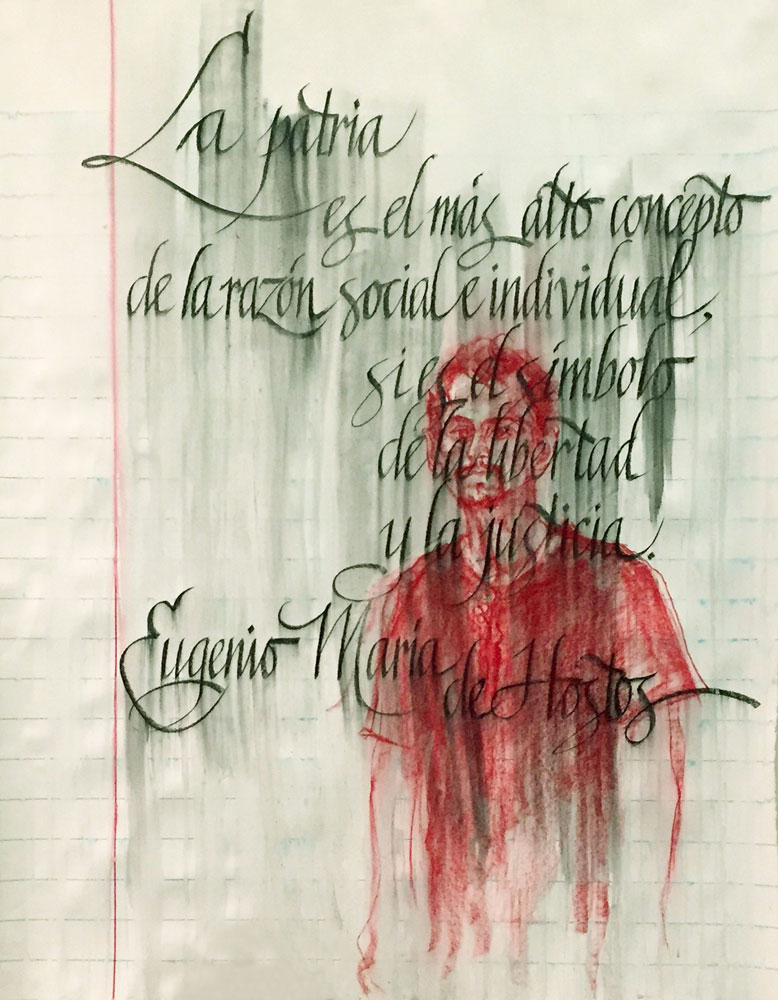 La patria
es el más alto concepto
de la razón social e individual,
si es el símbolo
de la libertad
y la justicia.
Eugenio María
de Hostos